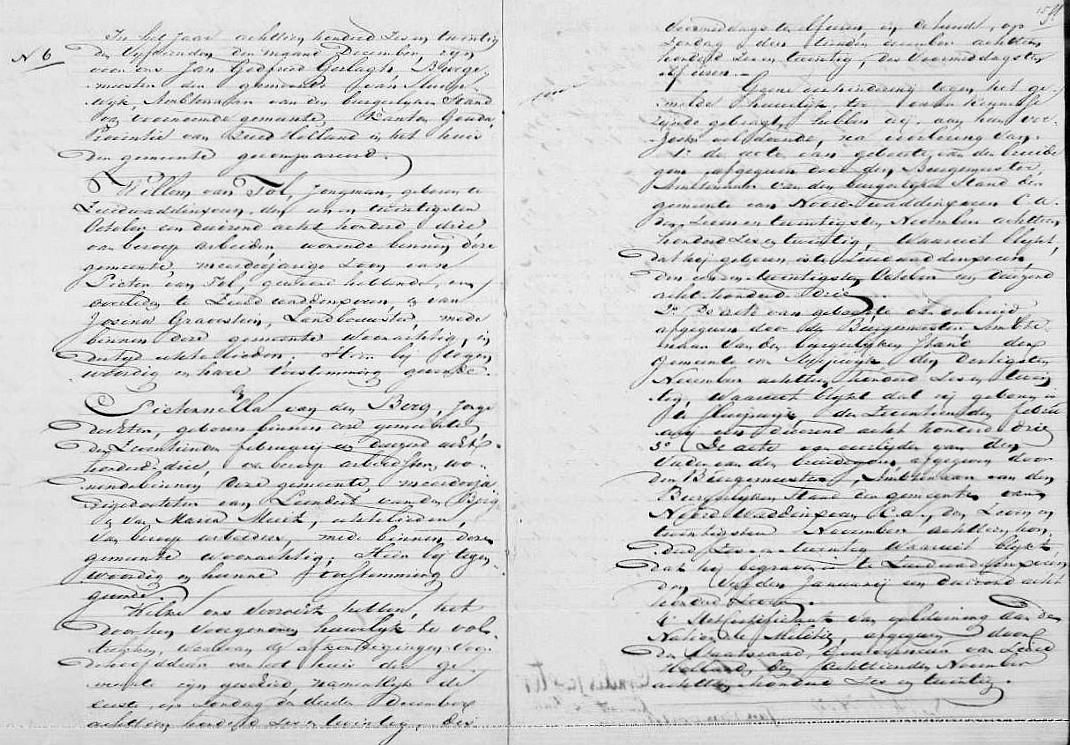 N 6
In het Jaar achttien honderd Zes en twintig
den vyftienden der maand December, zijn
voor ons Jan Godfried Gerlagh, Burge-
meester der gemeente van
wijk, Ambtenaar van den burgerlyken Stand
van voornoemde gemeente, Kanton Gouda,
Provintie van Zuid Holland in het huis
der gemeente gecompareerd.
Willem van Tol, Jongman, geboren te
Zuidwaddinxveen, den een en twintigsten
October een duizend acht honderd drie
van beroep arbeider, wonende binnen deze
gemeente, meerderjarige Zoon van
Pieter van Tol, gewoond hebbende, en
overleden te Zuidwaddinxveen, en van
Josina Gravestein, Landbouwster, mede
binnen deze gemeente woonachtig, in
echtelieden; Hier bij tegen
woordig en hare toestemming gevende.
&
Pieternella van den Berg, Jonge
dochter, geboren binnen deze gemeente
den Zeventienden februarij een duizend acht
honderd drie, van beroep arbeidster, wo-
nende binnen deze gemeente, meerderja
rige dochter van Leendert van den Berg
en van Maria Muit, echtelieden,
van beroep arbeiders, mede binnen deze
gemeente woonachtig; Hier bij tegen
woordig en hunne toestemming
gevende.
Welke ons verzocht hebben, het
door hen voorgenomen huwelijk te vol-
trekken, waarvan de afkondigingen voor
de hoofddeur van het huis der ge
meente zijn geschied, namentlijk de
eerste, op Zondag den derden December
achttien honderd Zes en twintig, des
voormiddags te elf uren, en de tweede, op
Zondag den tienden december achttien
honderd Zes en twintig, des voormiddags ten
elf uren.
Geene verhindering tegen het ge-
melde huwelijk, ter onzer kennisse
zijnde gebragt, hebben wij, aan hun ver-
zoek voldoende, na voorlezing van:
1e de acte van geboorte van den bruide
gom, afgegeven door den Burgemeester,
Ambtenaar van den burgerlijken Stand der
gemeente van Noord-waddinxveen C.A.
den Zeven en twintigsten November achttien
honderd Zes en twintig, Waaruit blijkt,
dat hij geboren is te Zuidwaddinxveen,
den een en twintigsten October een duizend
acht honderd drie.
2e De acte van geboorte der bruid,
afgegeven door den Burgemeester Ambte
naar van den burgerlyken Stand der
gemeente van den dertigsten
November achttien honderd Zes en twin
tig, Waaruit blijkt dat zij geboren is
te den Zeventienden febru
arij een duizend acht honderd drie
3e De acte van overlijden van den
Vader van den bruidegom, afgegeven door
den Burgemeester, Ambtenaar van den
Burgerlyken Stand der gemeente van
Noord Waddinxveen C.A., den Zeven en
twintigsten November achttien hon-
derd Zes en twintig Waaruit blijkt,
dat hij begraven is te Zuidwaddinxveen
den vyfden Januarij een duizend acht
honderd Zeven.
4e Het certificaat van voldoening aan de
Nationale Militie, afgegeven door
den Staatsraad, Gouverneur van Zuid
Holland, den achttienden November
achttien honderd Zes en twintig.